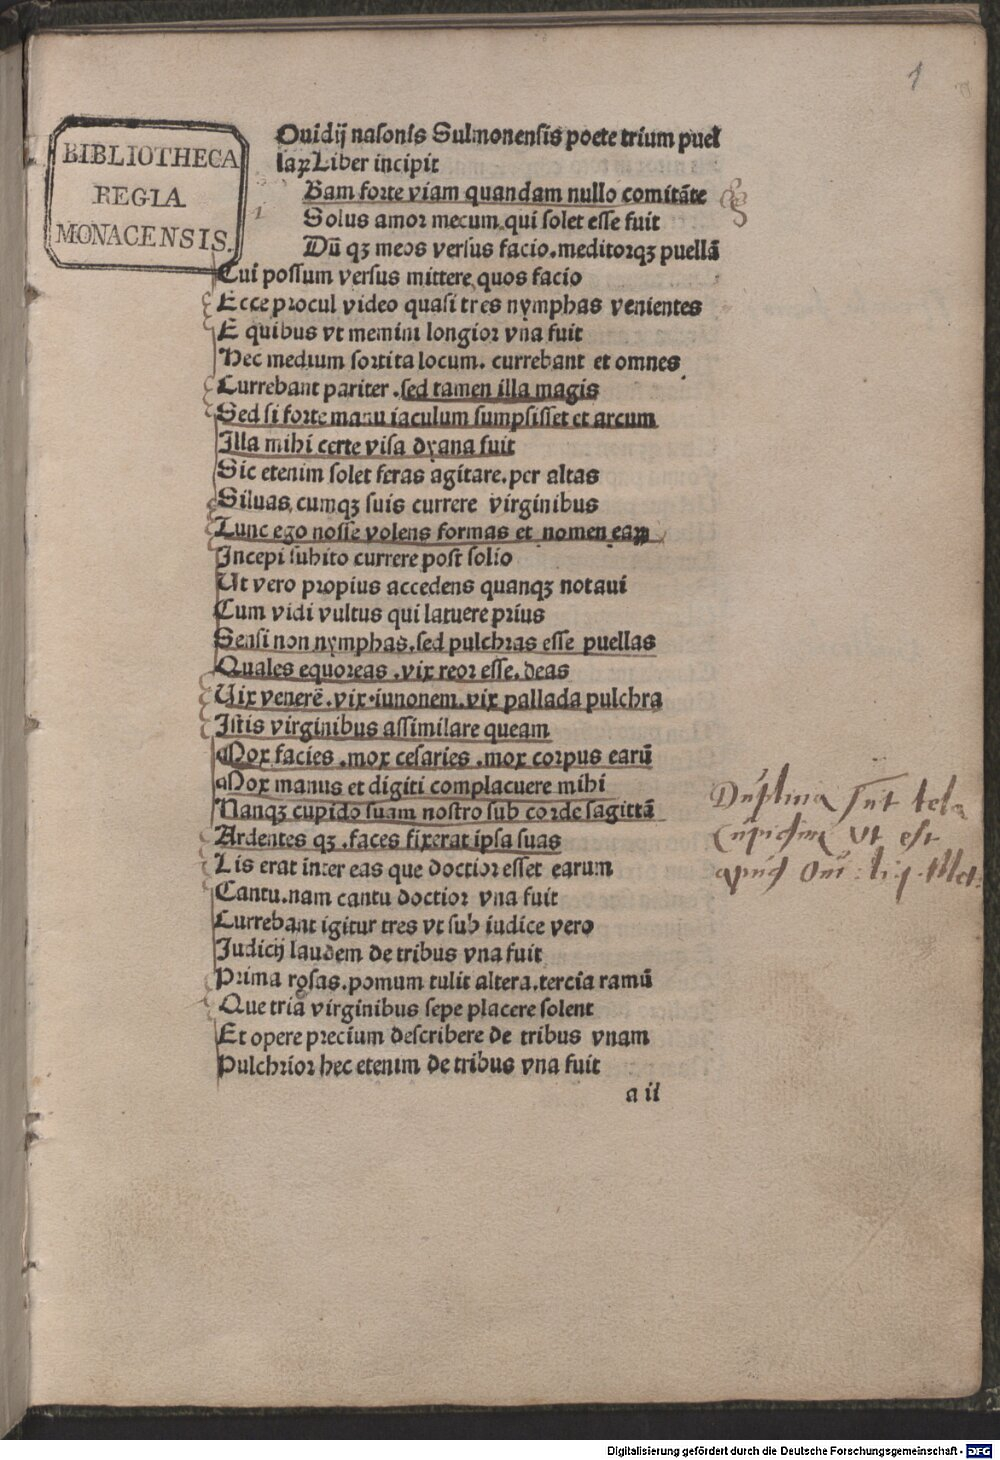 1
BIBLIOTHECA
REGIA
MONACENSIS.
Ouidij nasonis Sulmonensis poete trium puel
laꝝ Liber incipit
i
Bam forte viam quandam nullo comitāte
Solus amor mecum, qui solet esse fuit
Dū qꝫ meos versus facio. meditorqꝫ puellā
Cui possum versus mittere, quos facio
Ecce procul video quasi tres nymphas venientes
E quibus vt memini longior vna fuit
Hec medium sortita locum. currebant et omnes
Currebant pariter. sed tamen illa magis
Sed si forte manu iaculum sumpsisset et arcum
Illa mihi certe visa dyana fuit
Sic etenim solet feras agitare. per altas
Siluas, cumqꝫ suis currere virginibus
Tunc ego nosse volens formas et nomen eaꝝ
Incepi subito currere post solio
Ut vero propius accedens quanqꝫ notaui
Cum vidi vultus qui latuere prius
Sensi non nymphas. sed pulchras esse puellas
Quales equoreas. vix reor esse. deas
Uix venerē. vix. iunonem. vix pallada pulchra
Istis virginibus assimilare queam
Mox facies. mox cesaries. mox corpus earū
Mox manus et digiti complacuere mihi
Nanqꝫ cupido suam nostro sub corde sagittā
Ardentes qꝫ. faces fixerat ipsa suas
Lis erat inter eas que doctior esset earum
Cantu. nam cantu doctior vna fuit
Currebant igitur tres vt sub iudice vero
Judicij laudem de tribus vna fuit
Prima rosas. pomum tulit altera. tercia ramū
Que tria virginibus sepe placere solent
Et opere precium describere de tribus vnam
Pulchrior hec etenim de tribus vna fuit
a ii
Duplicia sunt tela
Cupidinis vt est
apud Oui
Digitalisierung gefördert durch die Deutsche Forschungsgemeinschaft - DFG